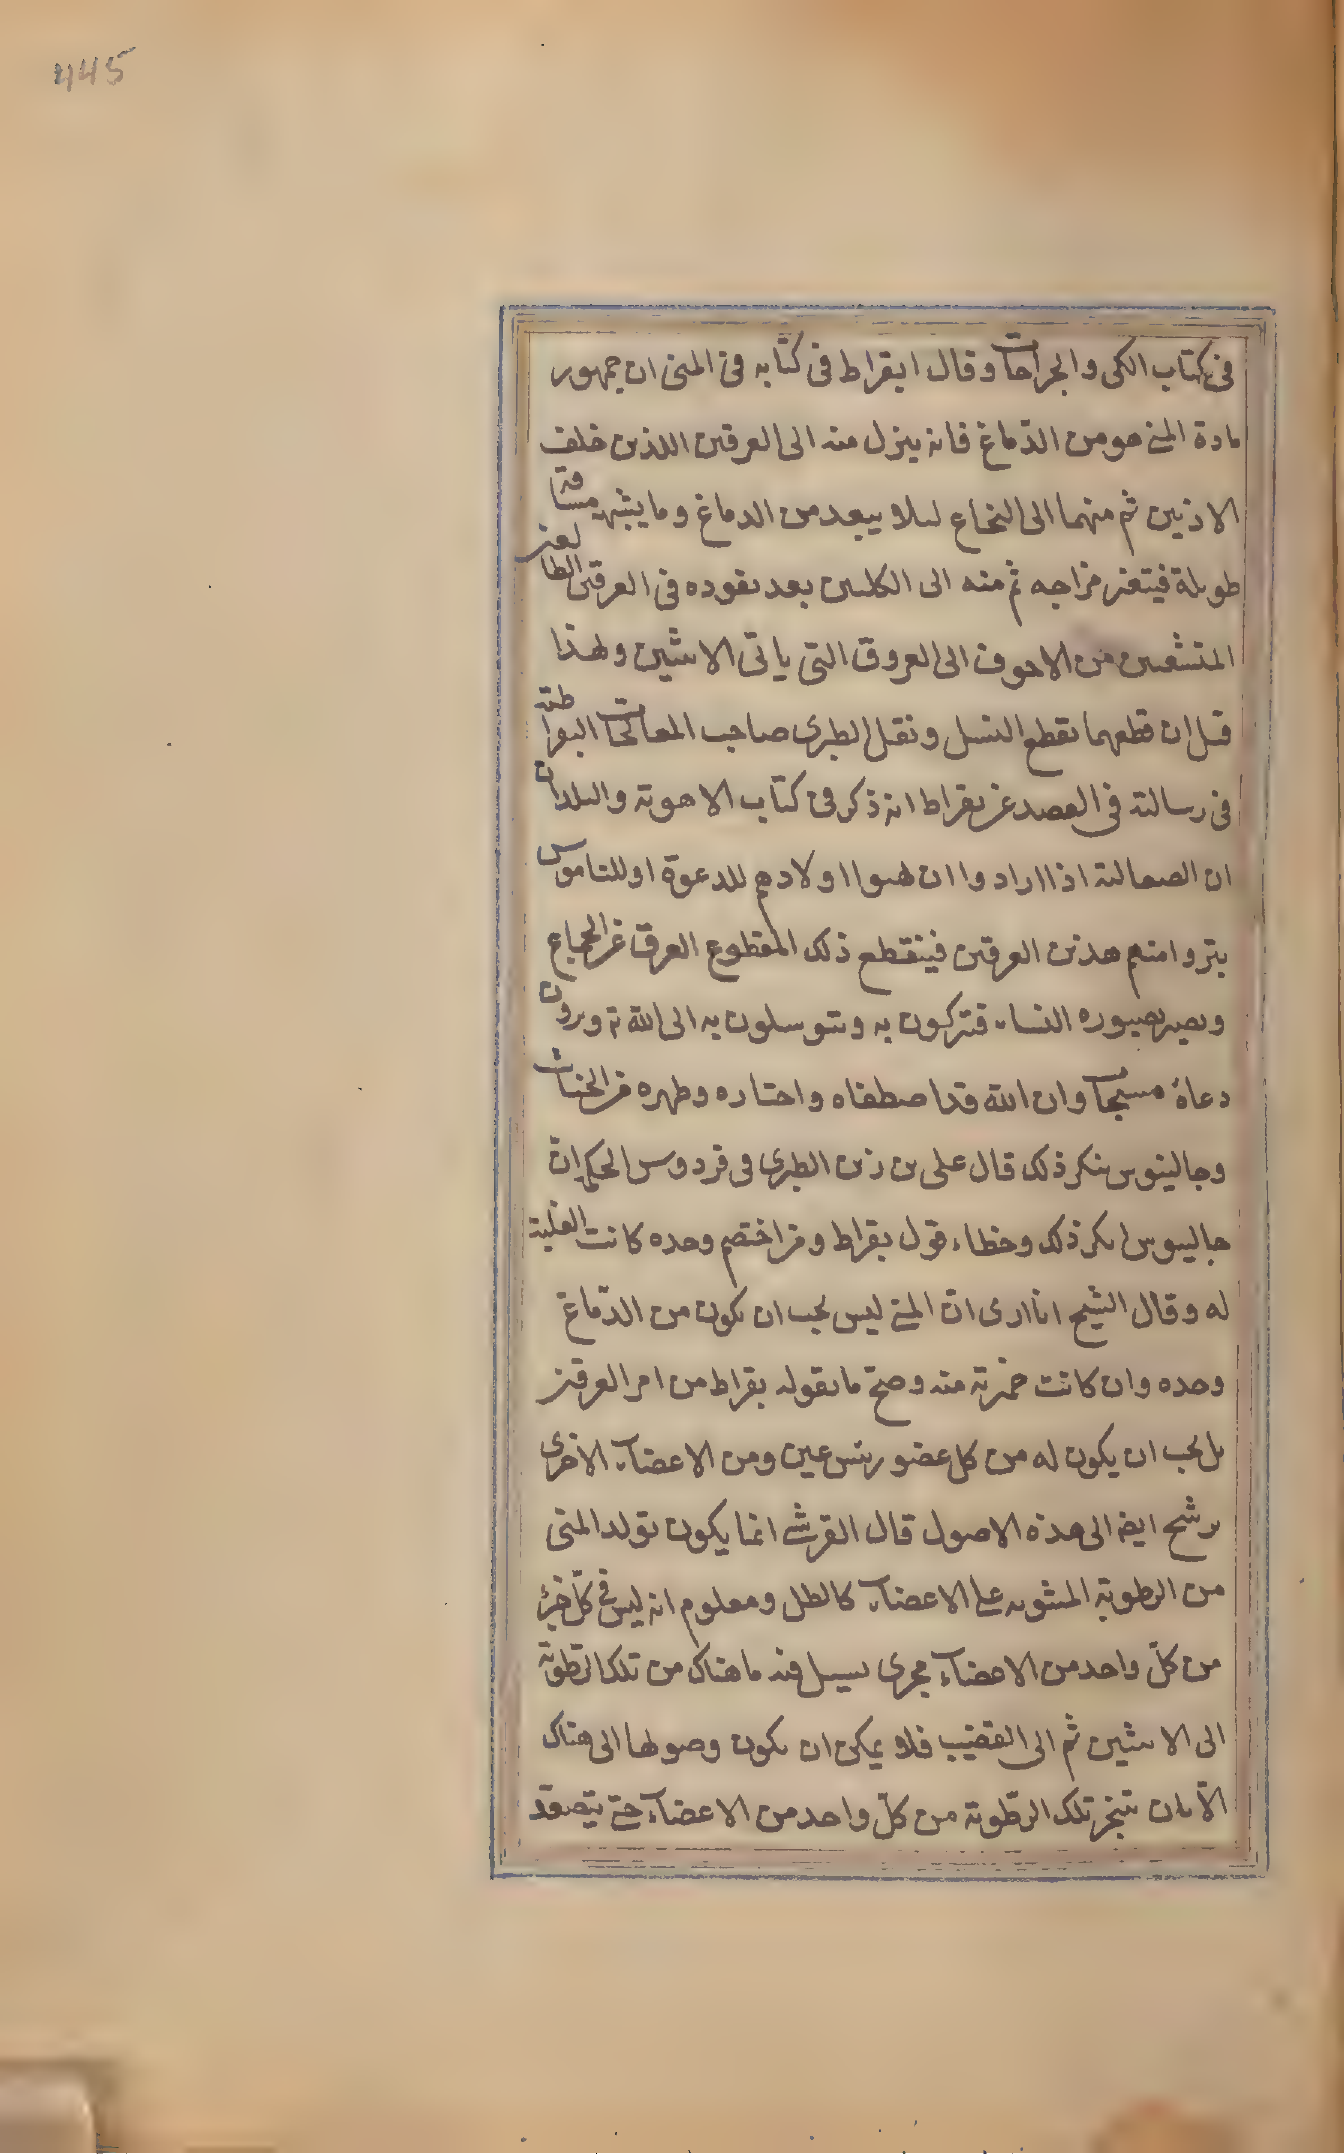 445
في كتاب الكى والجراحات وقال ابقراط فى كتابه فى المنى ان جمهور
مادة المنى هو من الدّماغ فانه ينزل منه الى العرقين اللذين خلف
الاذنين ثم منهما الى النخاع لئلا يبعد من الدماغ وما يشبهه مسافة
طويلة فيتغير مزاجه ثم منه الى الكليتين بعد نفوذه فى العرقين الطالعين
المتشعبين من الاجوف الى العروق التى ياتى الانثيين ولهذا
قيل ان قطعهما يقطع النسل ونقل الطبرى صاحب المعالجات البقراطية
فى رسالته فى الفصد عن بقراط انه ذكر فى كتاب الاهوية والبلدان
ان الصقالبة اذا ارادوا ان يهبوا اولادهم للدعوة او للناموس
بتروا منهم هذين العرقين فينقطع ذلك المقطوع العرق عن الجماع
ويصير بصورة النساء فيتركون به ويتوسلون به الى الله تع ويرون
دعاءه مستجابا وان الله قد اصطفاه واختاره وطهره من الخبائث
وجالينوس ينكر ذلك قال على بن زين الطبرى فى فردوس الحكم ان
جالينوس انكر ذلك وخطاء قول بقراط ومن اختصم وحده كانت الغلبة
له وقال الشيخ انا ارى انّ المنى ليس يجب ان يكون من الدّماغ
وحده وان كانت خميرته منه وصحّ ما يقوله بقراط من امر العرقين
بل يجب ان يكون له من كل عضو رئيس عين ومن الاعضاء الاخرى
يرشح ايضا الى هذه الاصول قال القرشى انما يكون تولد المنى
من الرطوبة المبثوثه على الاعضاء كالطل ومعلوم انه ليس فى كلّ جزء
من كلّ واحد من الاعضاء مجرى يسيل فيه ما هناك من تلك الرّطوبة
الى الانثيين ثم الى القضيب فلا يمكن ان يكون وصولها الى هناك
الاّ بان تتبخر تلك الرّطوبة من كلّ واحد من الاعضاء حتى يتصعّد